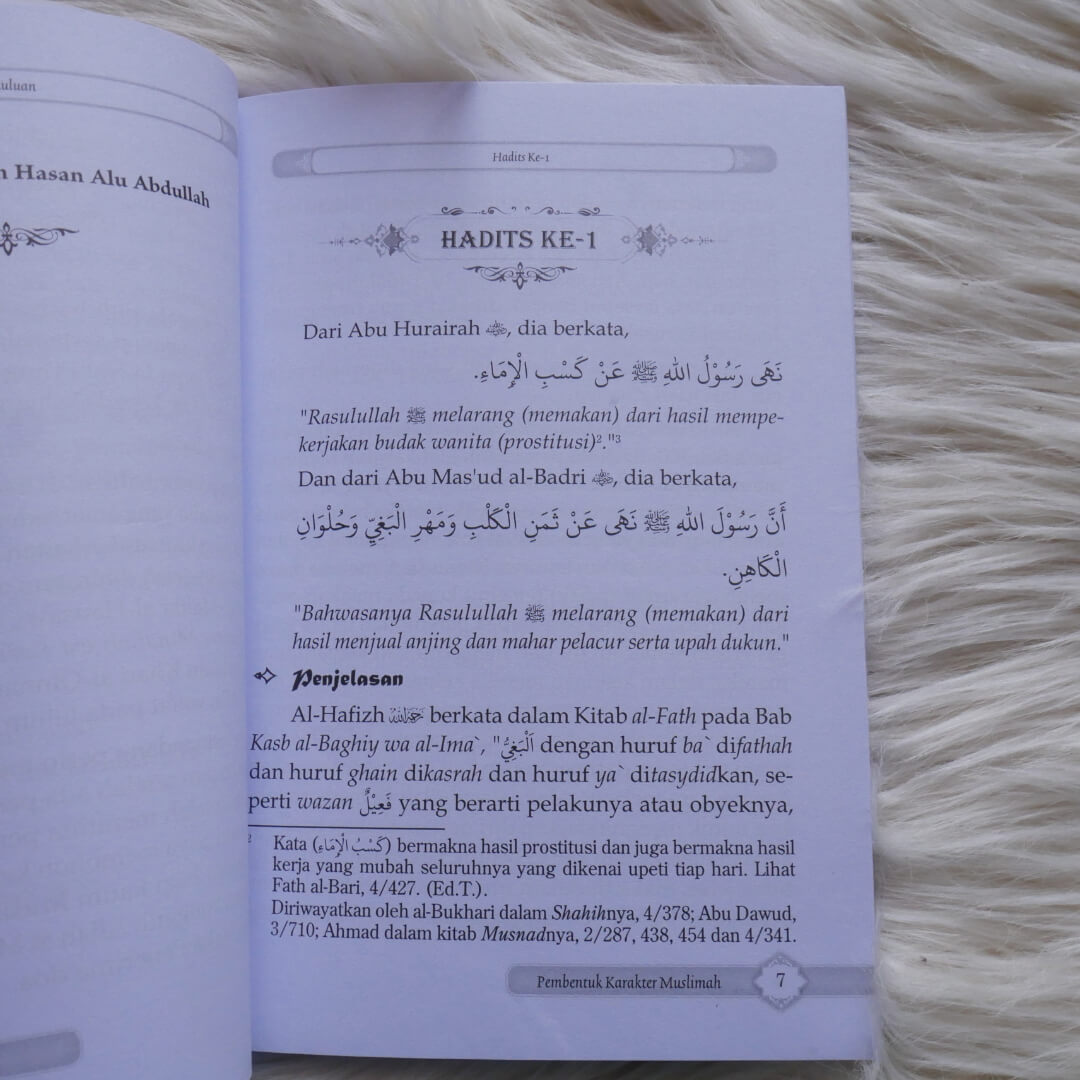 uluan
Hasan Alu Abdullah
Hadits Ke-1
HADITS KE-1
Dari Abu Hurairah ﷺ, dia berkata,
نَهَى رَسُوْلُ اللهِ ﷺ عَنْ كَسْبِ الْإِمَاءِ.
"Rasulullah ﷺ melarang (memakan) dari hasil mempe-
kerjakan budak wanita (prostitusi)²."³
Dan dari Abu Mas'ud al-Badri, dia berkata,
أَنَّ رَسُوْلَ اللهِ ﷺ نَهَى عَنْ ثَمَنِ الْكَلْبِ وَمَهْرِ الْبَغِيِّ وَحُلْوَانِ
الْكَاهِنِ.
"Bahwasanya Rasulullah ﷺ melarang (memakan) dari
hasil menjual anjing dan mahar pelacur serta upah dukun."
Penjelasan
Al-Hafizh berkata dalam Kitab al-Fath pada Bab
Kasb al-Baghiy wa al-Ima`, "اَلْبَغِيُّ dengan huruf ba` difathah
dan huruf ghain dikasrah dan huruf ya` ditasydidkan, se-
perti wazan فَعِيْلٌ yang berarti pelakunya atau obyeknya,
² Kata (كَسْبُ الْإِمَاءِ) bermakna hasil prostitusi dan juga bermakna hasil
kerja yang mubah seluruhnya yang dikenai upeti tiap hari. Lihat
Fath al-Bari, 4/427. (Ed.T.).
Diriwayatkan oleh al-Bukhari dalam Shahihnya, 4/378; Abu Dawud,
3/710; Ahmad dalam kitab Musnadnya, 2/287, 438, 454 dan 4/341.
Pembentuk Karakter Muslimah 7